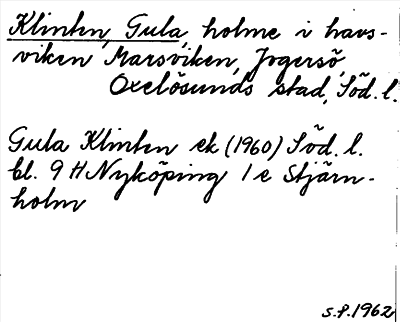 Klinten, Gula, holme i havs-
viken Marsviken, Jogersö,
Oxelösunds stad, Söd. l.
Gula Klinten ek (1960) Söd. l.
bl. 9 H Nyköping 1 e Stjärn-
holm
S.P. 1962